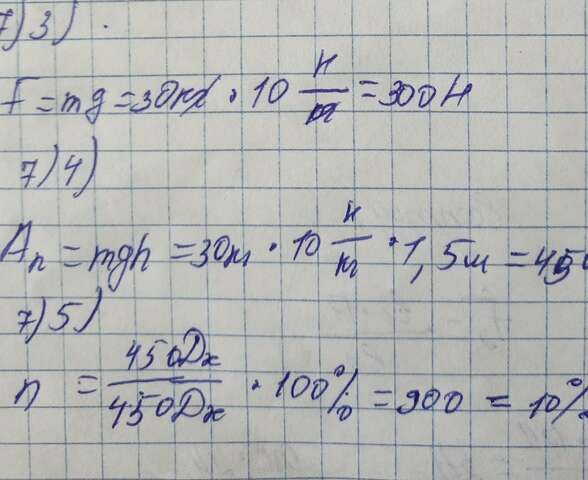 7) 3)
F = mg = 30кг · 10 Н/кг = 300Н
7) 4)
Aп = mgh = 30кг · 10 Н/кг · 1,5м = 450
7) 5)
n = 450Дж/450Дж · 100% = 900 = 10%